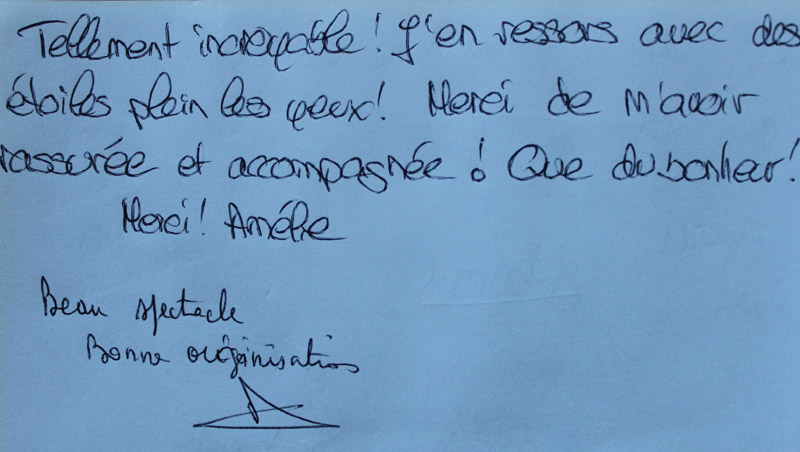 Tellement incroyable ! J'en ressors avec des
étoiles plein les yeux ! Merci de m'avoir
rassurée et accompagnée ! Que du bonheur !
Merci ! Amélie
Beau spectacle
Bonne organisation